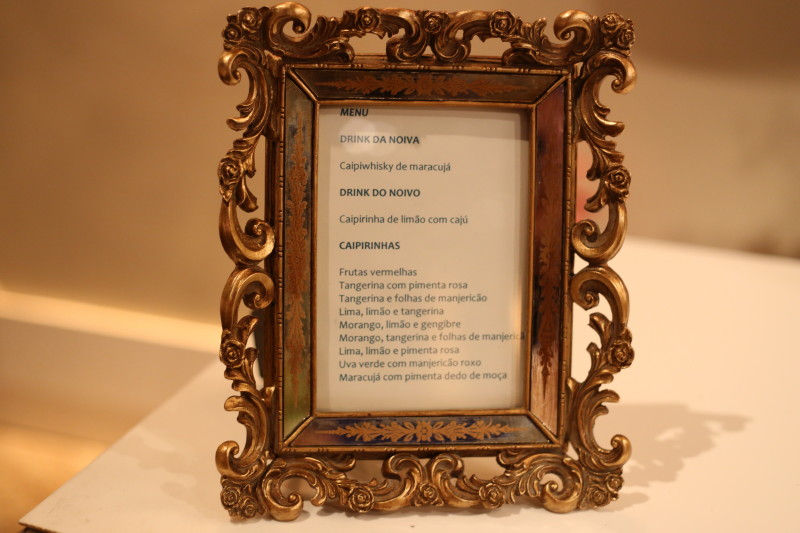 MENU
DRINK DA NOIVA
Caipiwhisky de maracujá
DRINK DO NOIVO
Caipirinha de limão com cajú
CAIPIRINHAS
Frutas vermelhas
Tangerina com pimenta rosa
Tangerina e folhas de manjericão
Lima, limão e tangerina
Morango, limão e gengibre
Morango, tangerina e folhas de manjericã
Lima, limão e pimenta rosa
Uva verde com manjericão roxo
Maracujá com pimenta dedo de moça